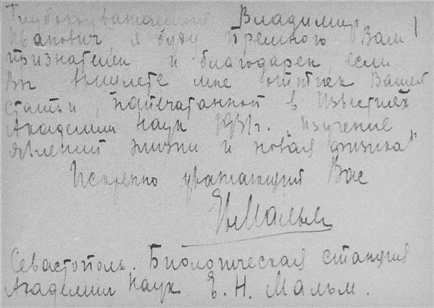 Глубокоуважаемый Владимир
Иванович я буду премного Вам
признателен и благодарен, если
Вы вышлете мне оттиск Вашей
статьи, напечатанной в Известиях
Академии Наук 1931 г. „изучение
явлений жизни и новая физика"
Искренно уважающий Вас
ЕМальм
Севастополь. Биологическая станция
Академии Наук Е. Н. Мальм.